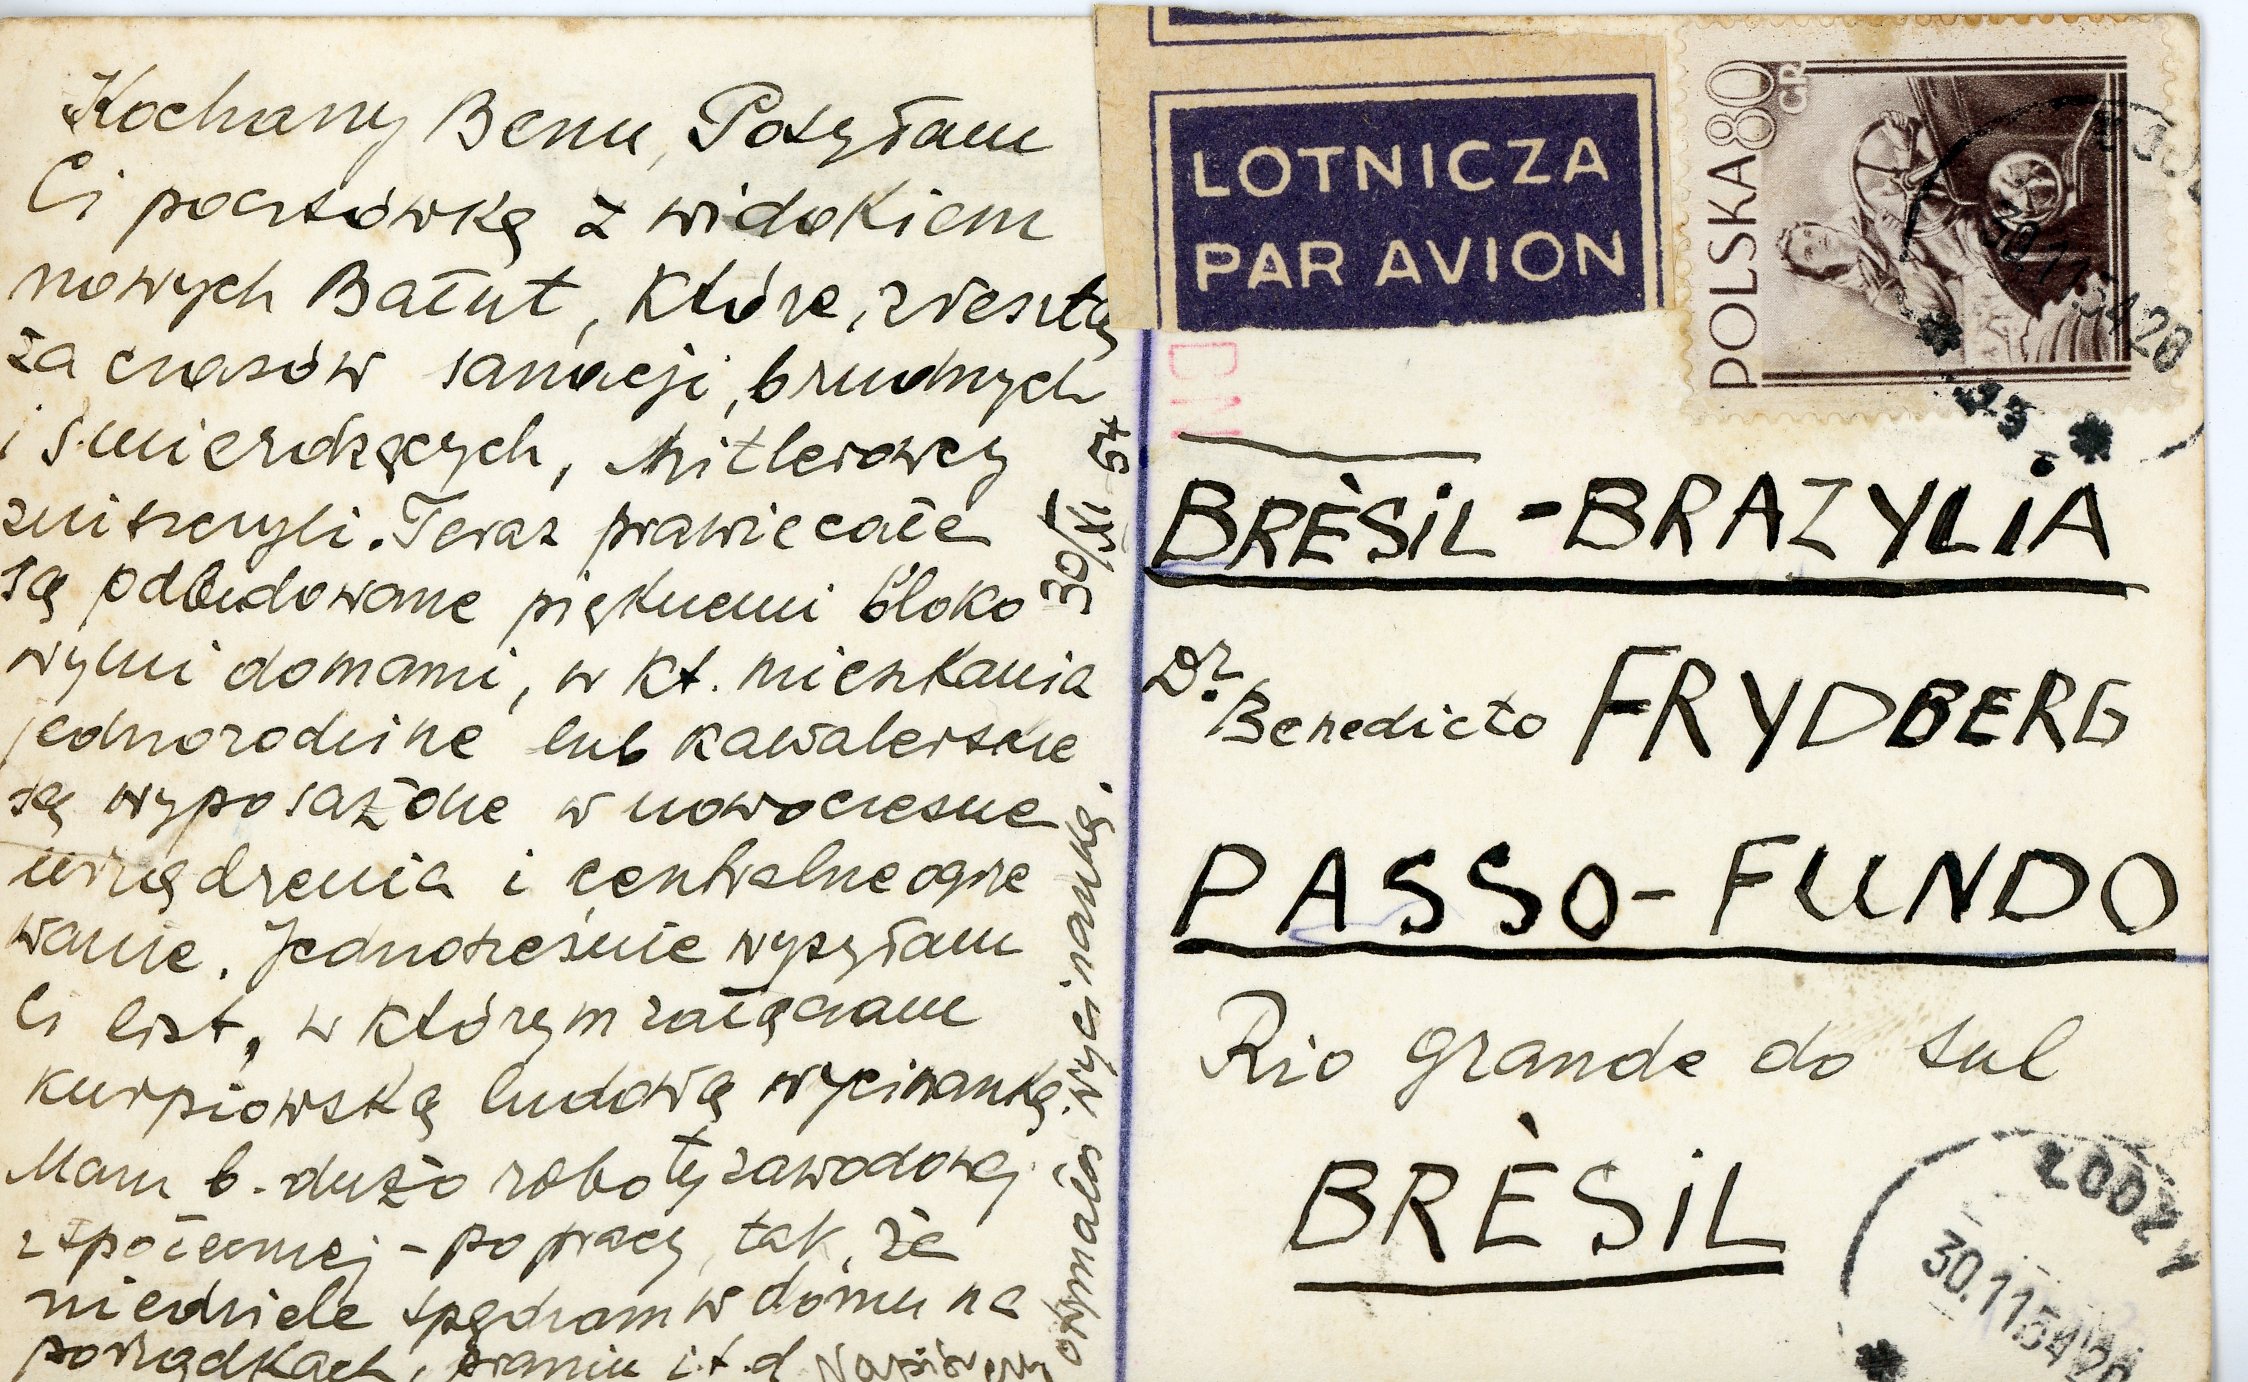 Kochany Benu, Posyłam
Ci pocztówkę z widokiem
nowych Bałut, które, zresztą
za czasów sanacji, brudnych
i śmierdzących, hitlerowcy
zniszczyli. Teraz prawie całe
są odbudowane pięknemi bloko
wymi domami, w kt. mieszkania
jednorodzinne lub kawalerskie
są wyposażone w nowoczesne
urządzenia i centralne ogrze
wanie. Jednocześnie wysyłam
Ci list, w którym załączam
kurpiowską ludową wycinankę.
Mam b. dużo roboty zawodowej
i społecznej - po pracy, tak, że
niedziele spędzam w domu na
porządkach, praniu i.t.d Napisz czy
otrzymałeś wycinankę.
30/XI 54
LOTNICZA
PAR AVION
POLSKA 80 GR
30.11.54 20
BRÈSiL - BRAZYLiA
Dr. Benedicto FRYDBERG
PASSO - FUNDO
Rio grande do Sul
BRÈSiL
ŁÓDŹ 1
30.11.54 20